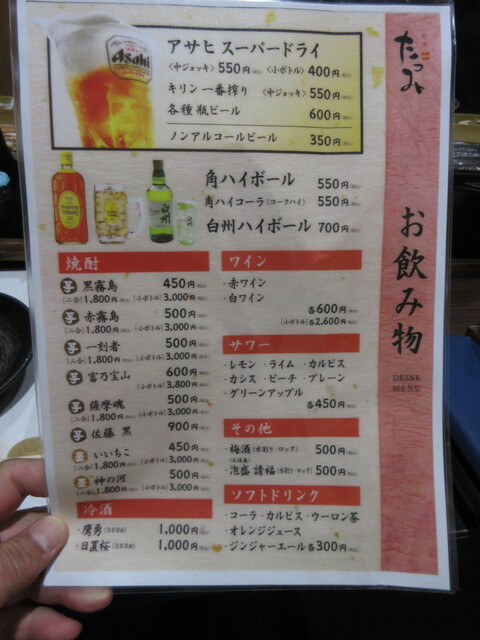 たつみ
お飲み物
DRINK
MENU
Asahi
アサヒ スーパードライ
〈中ジョッキ〉550円(税込) 〈小ボトル〉400円(税込)
キリン一番搾り 〈中ジョッキ〉550円(税込)
各種 瓶ビール 600円(税込)
ノンアルコールビール 350円(税込)
白州
角ハイボール 550円(税込)
角ハイコーラ(コークハイ) 550円(税込)
白州ハイボール 700円(税込)
焼酎
芋 黒霧島 450円(税込)
[二合]1,800円(税込) [小ボトル]3,000円(税込)
芋 赤霧島 500円(税込)
[二合]1,800円(税込) [小ボトル]3,000円(税込)
芋 一刻者 500円(税込)
[二合]1,800円(税込) [小ボトル]3,000円(税込)
芋 富乃宝山 600円(税込)
[小ボトル]3,800円(税込)
芋 薩摩魂 500円(税込)
[二合]1,800円(税込) [小ボトル]3,000円(税込)
芋 佐藤 黒 900円(税込)
麦 いいちこ 450円(税込)
[二合]1,800円(税込) [小ボトル]3,000円(税込)
麦 神の河 500円(税込)
[二合]1,800円(税込) [小ボトル]3,000円(税込)
冷酒
・鷹勇(300ml) 1,000円(税込)
・日置桜(300ml) 1,000円(税込)
ワイン
・赤ワイン
・白ワイン
各600円(税込)
[小ボトル]各2,600円(税込)
サワー
・レモン ・ライム ・カルピス
・カシス ・ピーチ ・プレーン
・グリーンアップル
各450円(税込)
その他
・梅酒(水割り・ロック) 500円(税込)
・泡盛 請福(水割り・ロック) 500円(税込)
ソフトドリンク
・コーラ ・カルピス ・ウーロン茶
・オレンジジュース
・ジンジャーエール 各300円(税込)